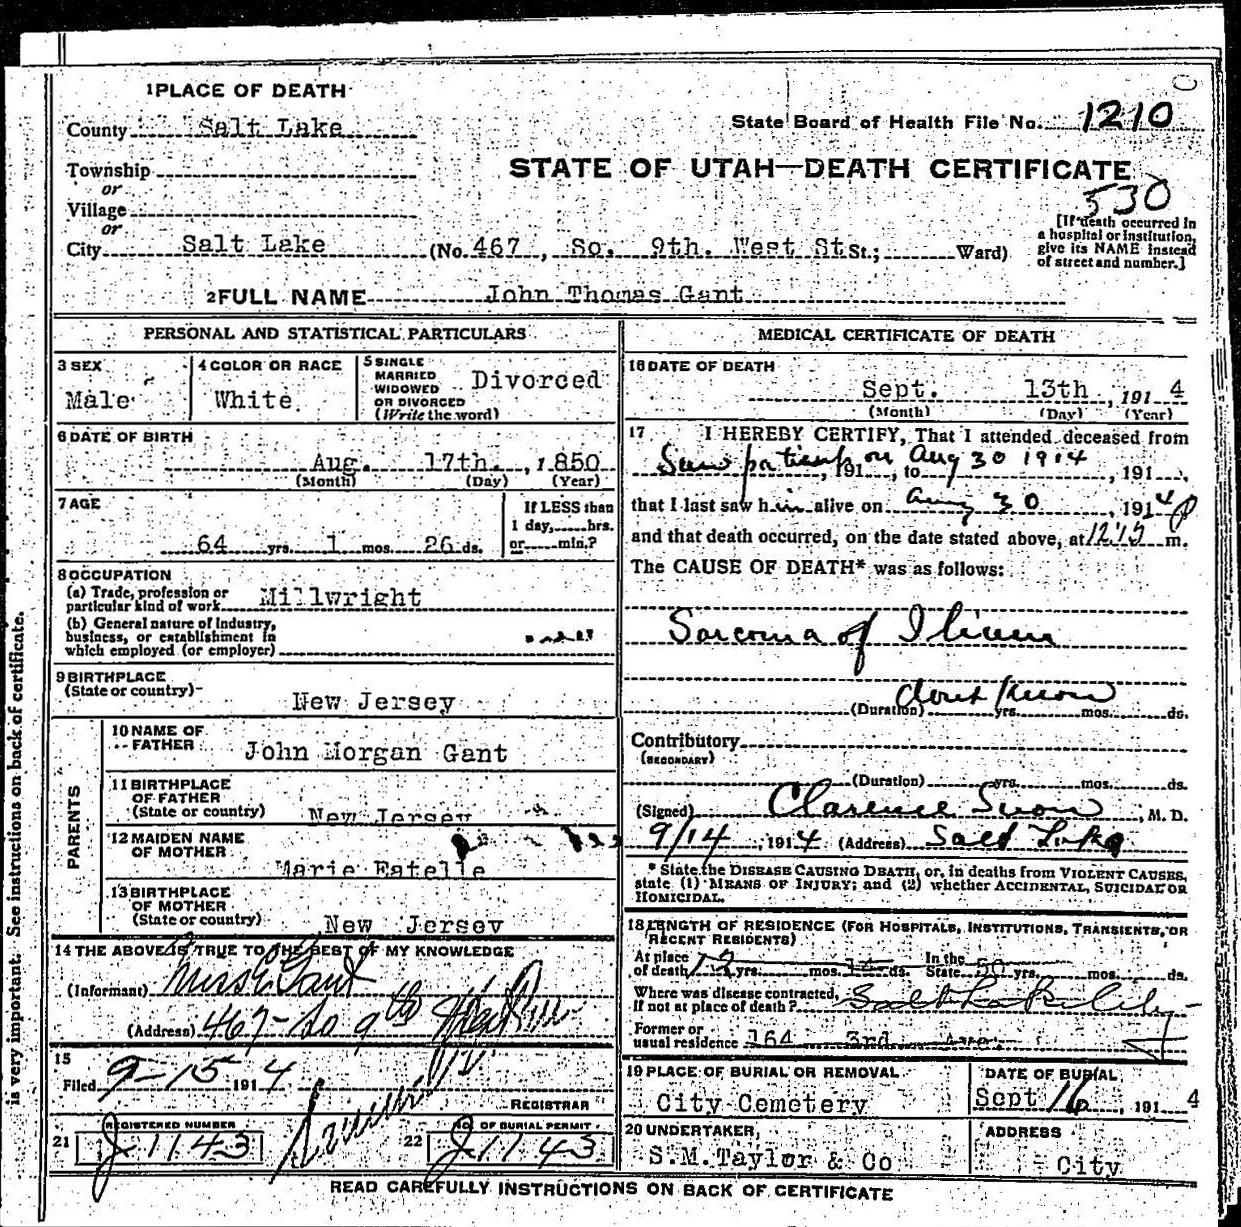 1 PLACE OF DEATH
County Salt Lake
State Board of Health File No. 1210
Township
or
Village
or
STATE OF UTAH—DEATH CERTIFICATE
530
City Salt Lake (No. 467, So. 9th. West St St.; Ward)
[If death occurred in
a hospital or institution,
give its NAME instead
of street and number.]
2 FULL NAME John Thomas Gant
PERSONAL AND STATISTICAL PARTICULARS
3 SEX
Male
4 COLOR OR RACE
White
5 SINGLE
MARRIED
WIDOWED
OR DIVORCED
(Write the word)
Divorced
6 DATE OF BIRTH
Aug. 17th. , 1850
(Month) (Day) (Year)
7 AGE
64 yrs. 1 mos. 26 ds.
If LESS than
1 day, hrs.
or min.?
8 OCCUPATION
(a) Trade, profession or
particular kind of work Millwright
(b) General nature of Industry,
business, or establishment in
which employed (or employer)
9 BIRTHPLACE
(State or country)
New Jersey
PARENTS
10 NAME OF
FATHER
John Morgan Gant
11 BIRTHPLACE
OF FATHER
(State or country) New Jersey
12 MAIDEN NAME
OF MOTHER
Marie Estelle
13 BIRTHPLACE
OF MOTHER
(State or country) New Jersey
14 THE ABOVE IS TRUE TO THE BEST OF MY KNOWLEDGE
(Informant) Gant
(Address) 467 So 9th
15
Filed 9-15 1914
REGISTRAR
21 REGISTERED NUMBER
J 1143
22 NO. OF BURIAL PERMIT
J 1143
MEDICAL CERTIFICATE OF DEATH
16 DATE OF DEATH
Sept. 13th , 1914
(Month) (Day) (Year)
17 I HEREBY CERTIFY, That I attended deceased from
Saw patient on Aug 30 1914 , 191 , to , 191 ,
that I last saw him alive on Aug 30 , 1914
and that death occurred, on the date stated above, at m.
The CAUSE OF DEATH* was as follows:
Sarcoma of Ilium
dont know
(Duration) yrs. mos. ds.
Contributory
(SECONDARY)
(Duration) yrs. mos. ds.
(Signed) Clarence Snow , M. D.
9/14 , 1914 (Address) Salt Lake
* State the DISEASE CAUSING DEATH, or, in deaths from VIOLENT CAUSES,
state (1) MEANS OF INJURY; and (2) whether ACCIDENTAL, SUICIDAL OR
HOMICIDAL.
18 LENGTH OF RESIDENCE (FOR HOSPITALS, INSTITUTIONS, TRANSIENTS, OR
RECENT RESIDENTS)
At place
of death yrs. mos. ds. In the
State 50 yrs. mos. ds.
Where was disease contracted,
if not at place of death? Salt Lake City
Former or
usual residence 164 3rd Ave.
19 PLACE OF BURIAL OR REMOVAL
City Cemetery
DATE OF BURIAL
Sept 16 , 1914
20 UNDERTAKER
S.M. Taylor & Co
ADDRESS
City
READ CAREFULLY INSTRUCTIONS ON BACK OF CERTIFICATE
is very important. See instructions on back of certificate.